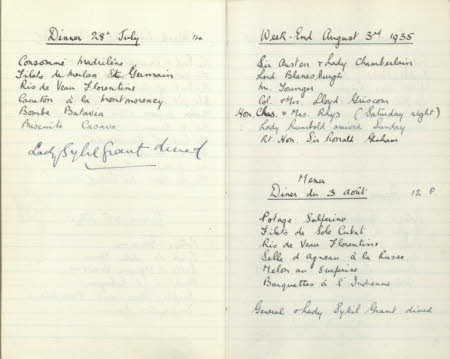 Dinner 28th July
Consommé Madrilène
Filets de merlan St. Germain
Ris de Veau Florentine
Caneton à la Montmorency
Bombe Batavia
Biscuits Casava
Lady Sybil Grant dined
Week-End August 3rd 1935
Sir Austen & Lady Chamberlain
Lord Blanesburgh
Mr Younger
Col. & Mrs. Lloyd Griscom
Hon. Chas. & Mrs. Rhys (Saturday night)
Lady Rumbold arrived Sunday
Rt Hon. Sir Ronald Graham
Menu
Diner du 3 août 12 P
Potage Solferino
Filets de Sole Cubat
Ris de Veau Florentine
Selle d'Agneau à la Russe
Melon au Surprise
Barquettes à l'Indienne
General & Lady Sybil Grant dined